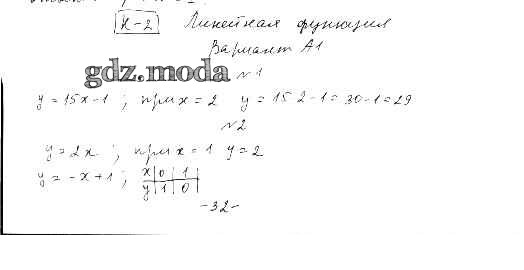 К-2 Линейная функция
Вариант А1
gdz.moda №1
y = 15x-1 ; при x = 2 y = 15·2-1 = 30-1 = 29
№2
y = 2x ; при x = 1 y = 2
y = -x+1 ; x|0|1
y|1|0
-32-